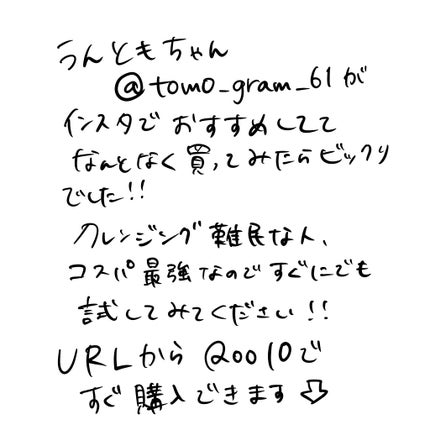 うんともちゃん
@tomo_gram_61が
インスタでおすすめしてて
なんとなく買ってみたらビックリ
でした!!
クレンジング難民な人、
コスパ最強なのですぐにでも
試してみてください!!
URLから@20010で
すぐ購入できます⇩